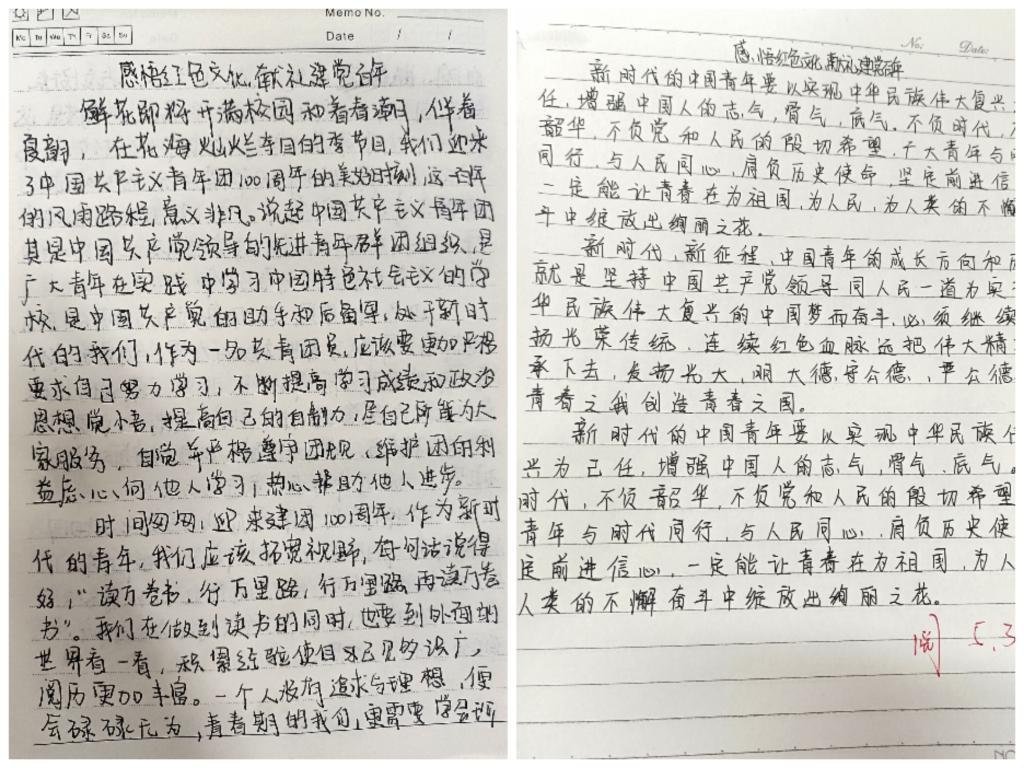 Memo No.
Mo Tu We Th Fr Sa Su
Date / /
感悟红色文化,献礼建党百年
鲜花即将开满校园和着春潮,伴着
夏韵,在花海灿烂夺目的季节,我们迎来
了中国共产主义青年团100周年的美好时刻,这百年
的风雨路程,意义非凡。说起中国共产主义青年团
其是中国共产党领导的先进青年群团组织,是
广大青年在实践中学习中国特色社会主义的学
校,是中国共产党的助手和后备军,处于新时
代的我们,作为一名共青团员,应该要更加严格
要求自己努力学习,不断提高学习成绩和政治
思想觉悟,提高自己的自制力,尽自己所能为大
家服务,自觉并严格遵守团规,维护团的利
益,虚心向他人学习,热心帮助他人进步。
时间匆匆,迎来建团100周年,作为新时
代的青年,我们应该拓宽视野,有句话说得
好,“读万卷书,行万里路,行万里路,再读万卷
书”。我们在做到读书的同时,也要到外面的
世界看一看,积累经验使自己见多识广,
阅历更加丰富。一个人没有追求与理想,便
会碌碌无为,青春期的我们,更需要学会
No:
Date:
感悟红色文化,献礼建党百年
新时代的中国青年要以实现中华民族伟大复兴
任,增强中国人的志气,骨气,底气.不负时代,
韶华,不负党和人民的殷切希望.广大青年与
同行,与人民同心,肩负历史使命,坚定前进信
一定能让青春在为祖国,为人民,为人类的不懈
斗中绽放出绚丽之花。
新时代,新征程,中国青年的成长方向和
就是坚持中国共产党领导同人民一道为实
华民族伟大复兴的中国梦而奋斗,必须继续
扬光荣传统,连续红色血脉远把伟大精
承下去,发扬光大,明大德,守公德,严公德
青春之我创造青春之国。
新时代的中国青年要以实现中华民族
兴为己任,增强中国人的志气,骨气.底气。
时代,不负韶华,不负党和人民的殷切希望
青年与时代同行,与人民同心,肩负历史使
定前进信心,一定能让青春在为祖国,为人
人类的不懈奋斗中绽放出绚丽之花。
阅 5.3